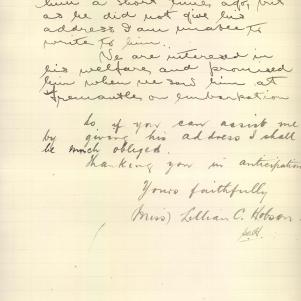 him a short time ago, but
as he did not give his
address I am unable to
write to him.
We are interested in
his welfare and promised
him when we saw him at
Fremantle on embarkation
so if you can assist me
by giving his address I shall
be much obliged.
Thanking you in anticipation
Yours faithfully
(Miss) Lillian C. Hobson.